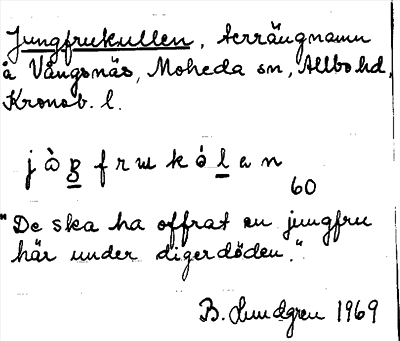 Jungfrukullen, terrängnamn
å Vångsnäs, Moheda sn, Allbo hd,
Kronob. l.
j ò̀ ŋ f r ɯ k ó l e n
60
"De ska ha offrat en jungfru
här under digerdöden."
B. Lundgren 1969